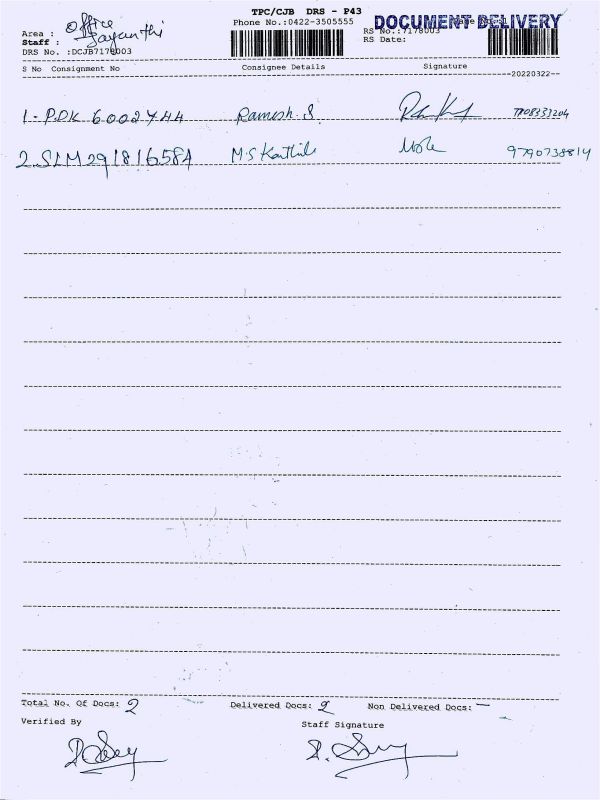 TPC/CJB DRS - P43
Phone No.:0422-3505555
DOCUMENT DELIVERY
Area : Office
Staff : Jayanthi
DRS No. :DCJB7178003
RS No.:7178003
RS Date:
S No Consignment No Consignee Details Signature
--20220322--
1 - PDK 6002744 Ramesh. S.
2. SLM 291816584 M.S Karthik 9790738814
Total No. Of Docs: 2 Delivered Docs: 2 Non Delivered Docs: —
Verified By Staff Signature